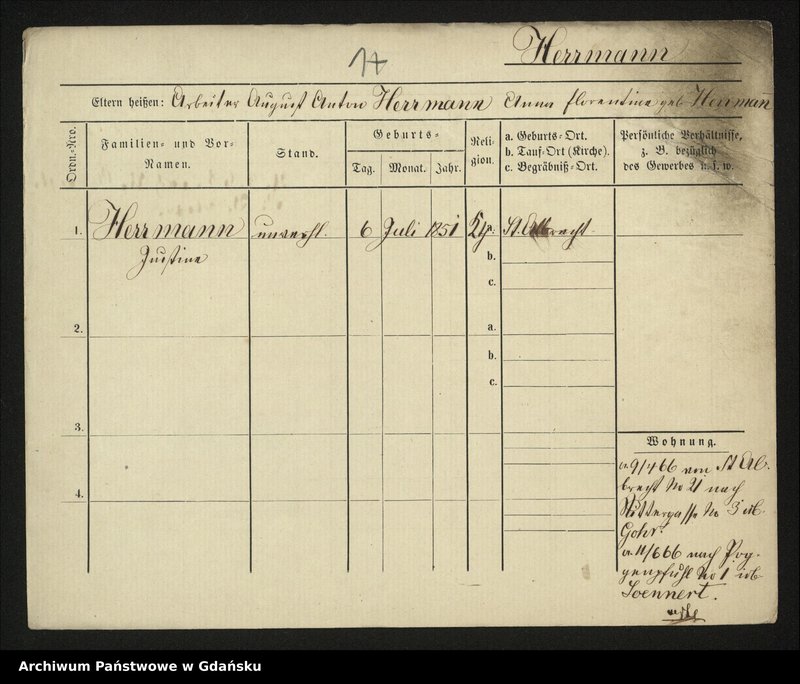 17
Herrmann
Eltern heißen: Arbeiter August Anton Herrmann Anna Florentine geb Herrmann
Ordn.-Nro.
Familien- und Vor-
Namen.
Stand.
Geburts-
Tag. Monat. Jahr.
Reli-
gion.
a. Geburts-Ort.
b. Tauf-Ort (Kirche).
c. Begräbniß-Ort.
Persönliche Verhältnisse,
z. B. bezüglich
des Gewerbes u. s. w.
1. Herrmann unverehl. 6 Juli 1851 a. St. Albrecht
Justine
b.
c.
2. a.
b.
c.
3.
4.
Wohnung.
a. 9/4 66 von St Al-
brecht No 21 nach
No 3 ub.
Gohr
a. 11/6 66 nach Pog-
genpfuhl No 1 ub
Soennert.
Archiwum Państwowe w Gdańsku